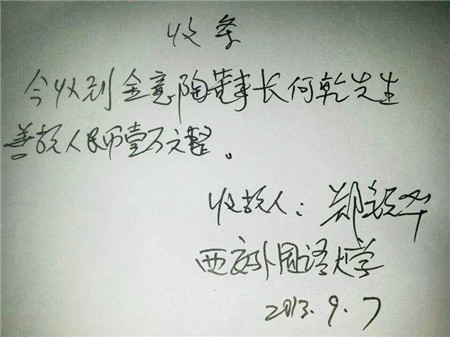 收条
今收到金意陶董事长何乾先生
善款人民币壹万元整。
收款人：郑锐华
西安外国语大学
2013.9.7